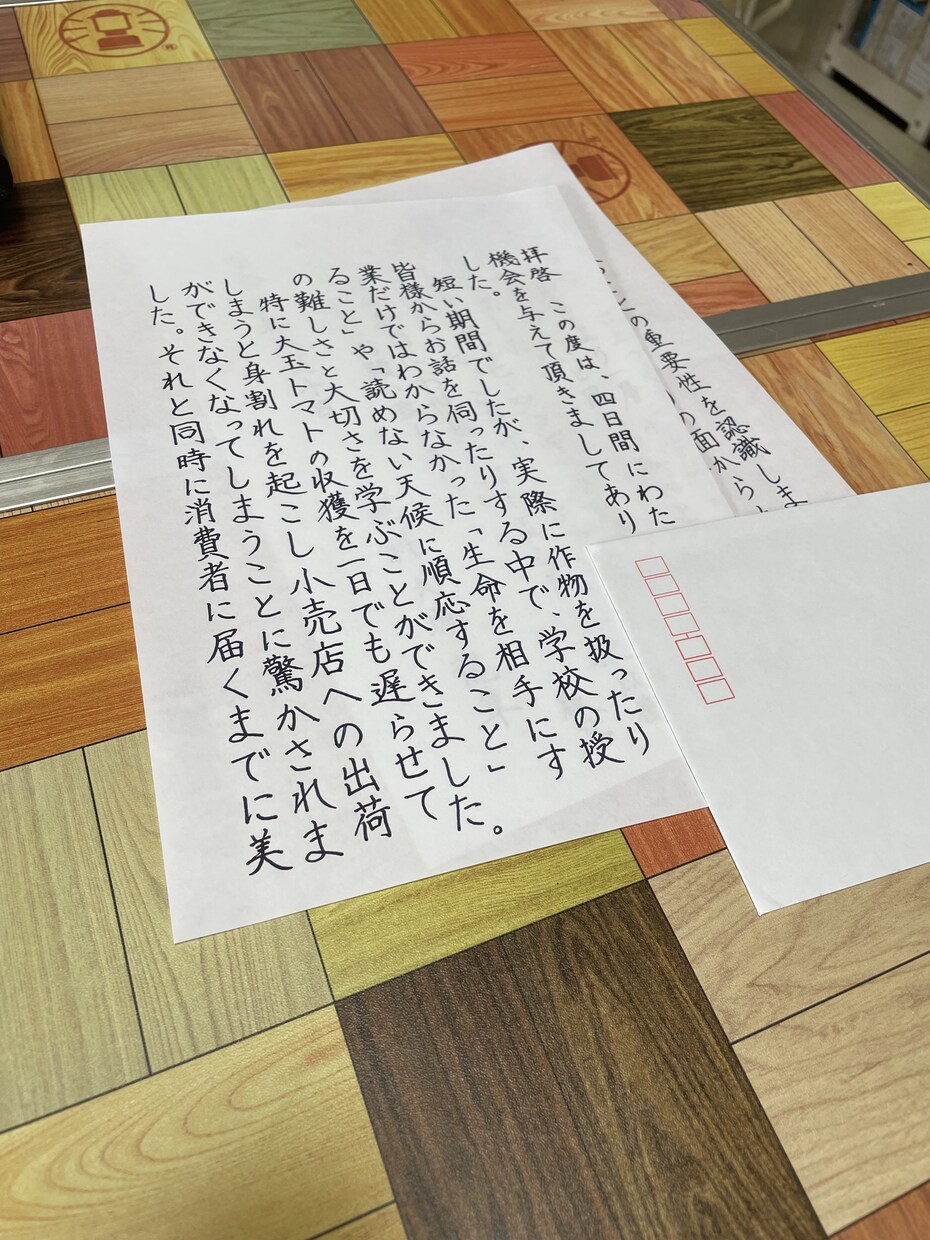 拝啓　この度は、四日間にわた
機会を与えて頂きましてあり
した。
短い期間でしたが、実際に作物を扱ったり
皆様からお話を伺ったりする中で、学校の授
業だけではわからなかった「生命を相手にす
ること」や「読めない天候に順応すること」
の難しさと大切さを学ぶことができました。
特に大玉トマトの収獲を一日でも遅らせて
しまうと身割れを起こし小売店への出荷
ができなくなってしまうことに驚かされま
した。それと同時に消費者に届くまでに美
との重要性を認識しま
の面から